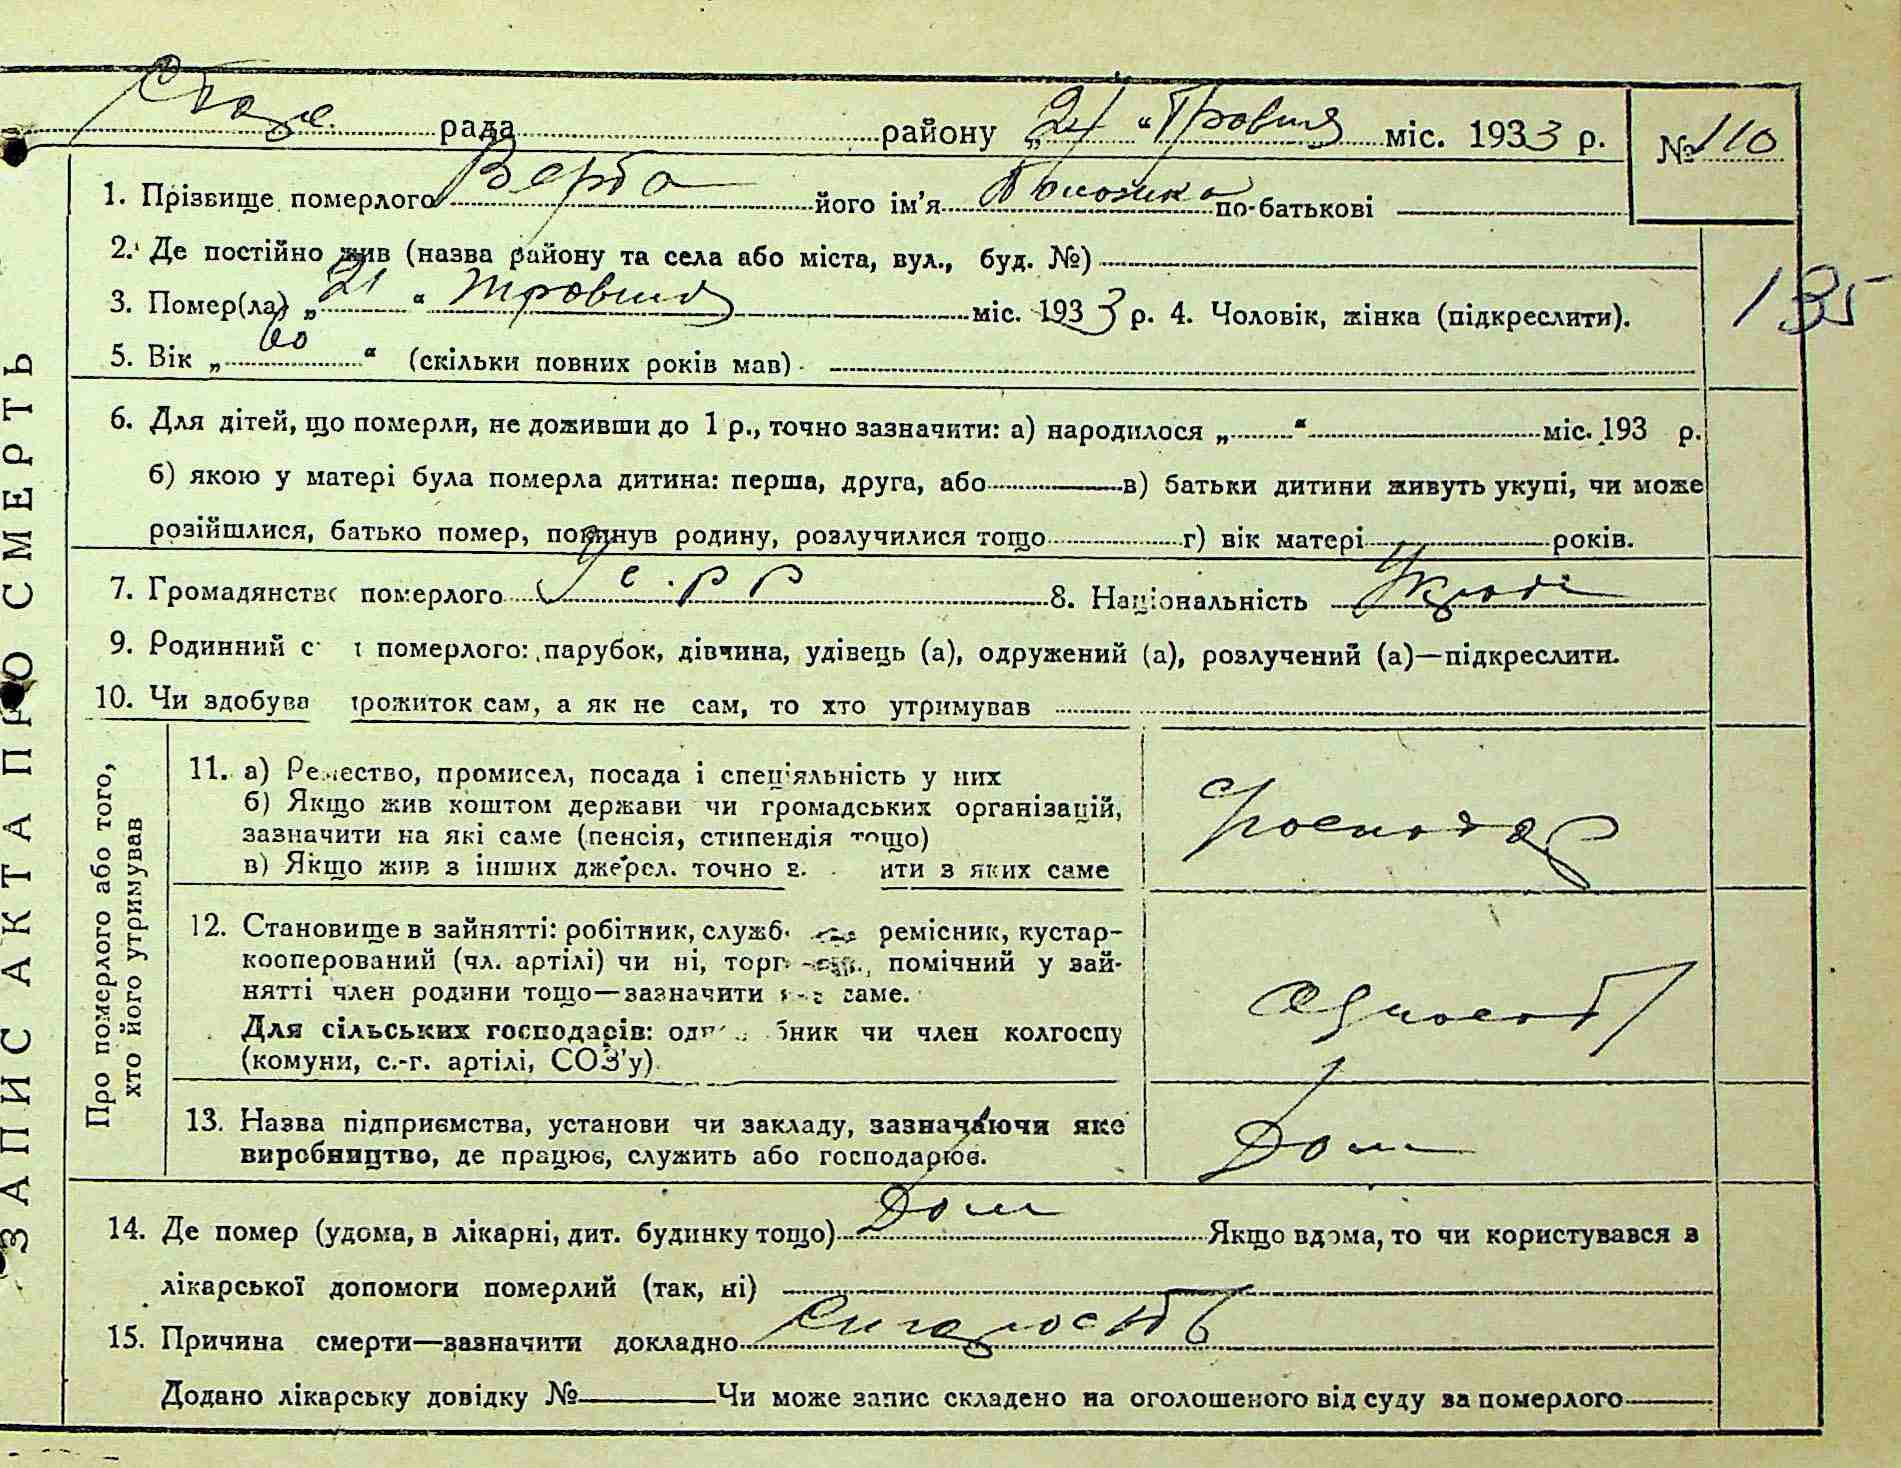 рада района „24“ Травня міс. 1933 р. № 110
1. Прізвище померлого Верба його ім'я по-батькові
2. Де постійно жив (назва району та села або міста, вул., буд. №)
3. Помер(ла) „21“ травня міс. 1933 р. 4. Чоловік, жінка (підкреслити).
135
5. Вік „60“ (скільки повних років мав)
6. Для дітей, що померли, не доживши до 1 р., точно зазначити: а) народилося „ “ міс. 193 р.
б) якою у матері була померла дитина: перша, друга, або в) батьки дитини живуть укупі, чи може
розійшлися, батько помер, покинув родину, розлучилися тощо г) вік матері років.
7. Громадянство померлого УСРР 8. Національність
9. Родинний с т померлого: парубок, дівчина, удівець (а), одружений (а), розлучений (а)—підкреслити.
10. Чи здобува прожиток сам, а як не сам, то хто утримував
Про померлого або того,
хто його утримував
11. а) Ремество, промисел, посада і спеціяльність у них
б) Якщо жив коштом держави чи громадських організацій,
зазначити на які саме (пенсія, стипендія тощо)
в) Якщо жив з інших джерел. точно з ити з яких саме
Господар
12. Становище в зайнятті: робітник, служб ремісник, кустар-
кооперований (чл. артілі) чи ні, торг помічний у зай-
нятті член родини тощо—зазначити саме.
Для сільських господарів: одноосібник чи член колгоспу
(комуни, с.-г. артілі, СОЗ'у)
13. Назва підприємства, установи чи закладу, зазначаючи яке
виробництво, де працює, служить або господарює.
Дом
14. Де помер (удома, в лікарні, дит. будинку тощо) Дом Якщо вдома, то чи користувався з
лікарської допомоги померлий (так, ні)
15. Причина смерти—зазначити докладно
Додано лікарську довідку № Чи може запис складено на оголошеного від суду за померлого
ЗАПИС АКТА ПРО СМЕРТЬ